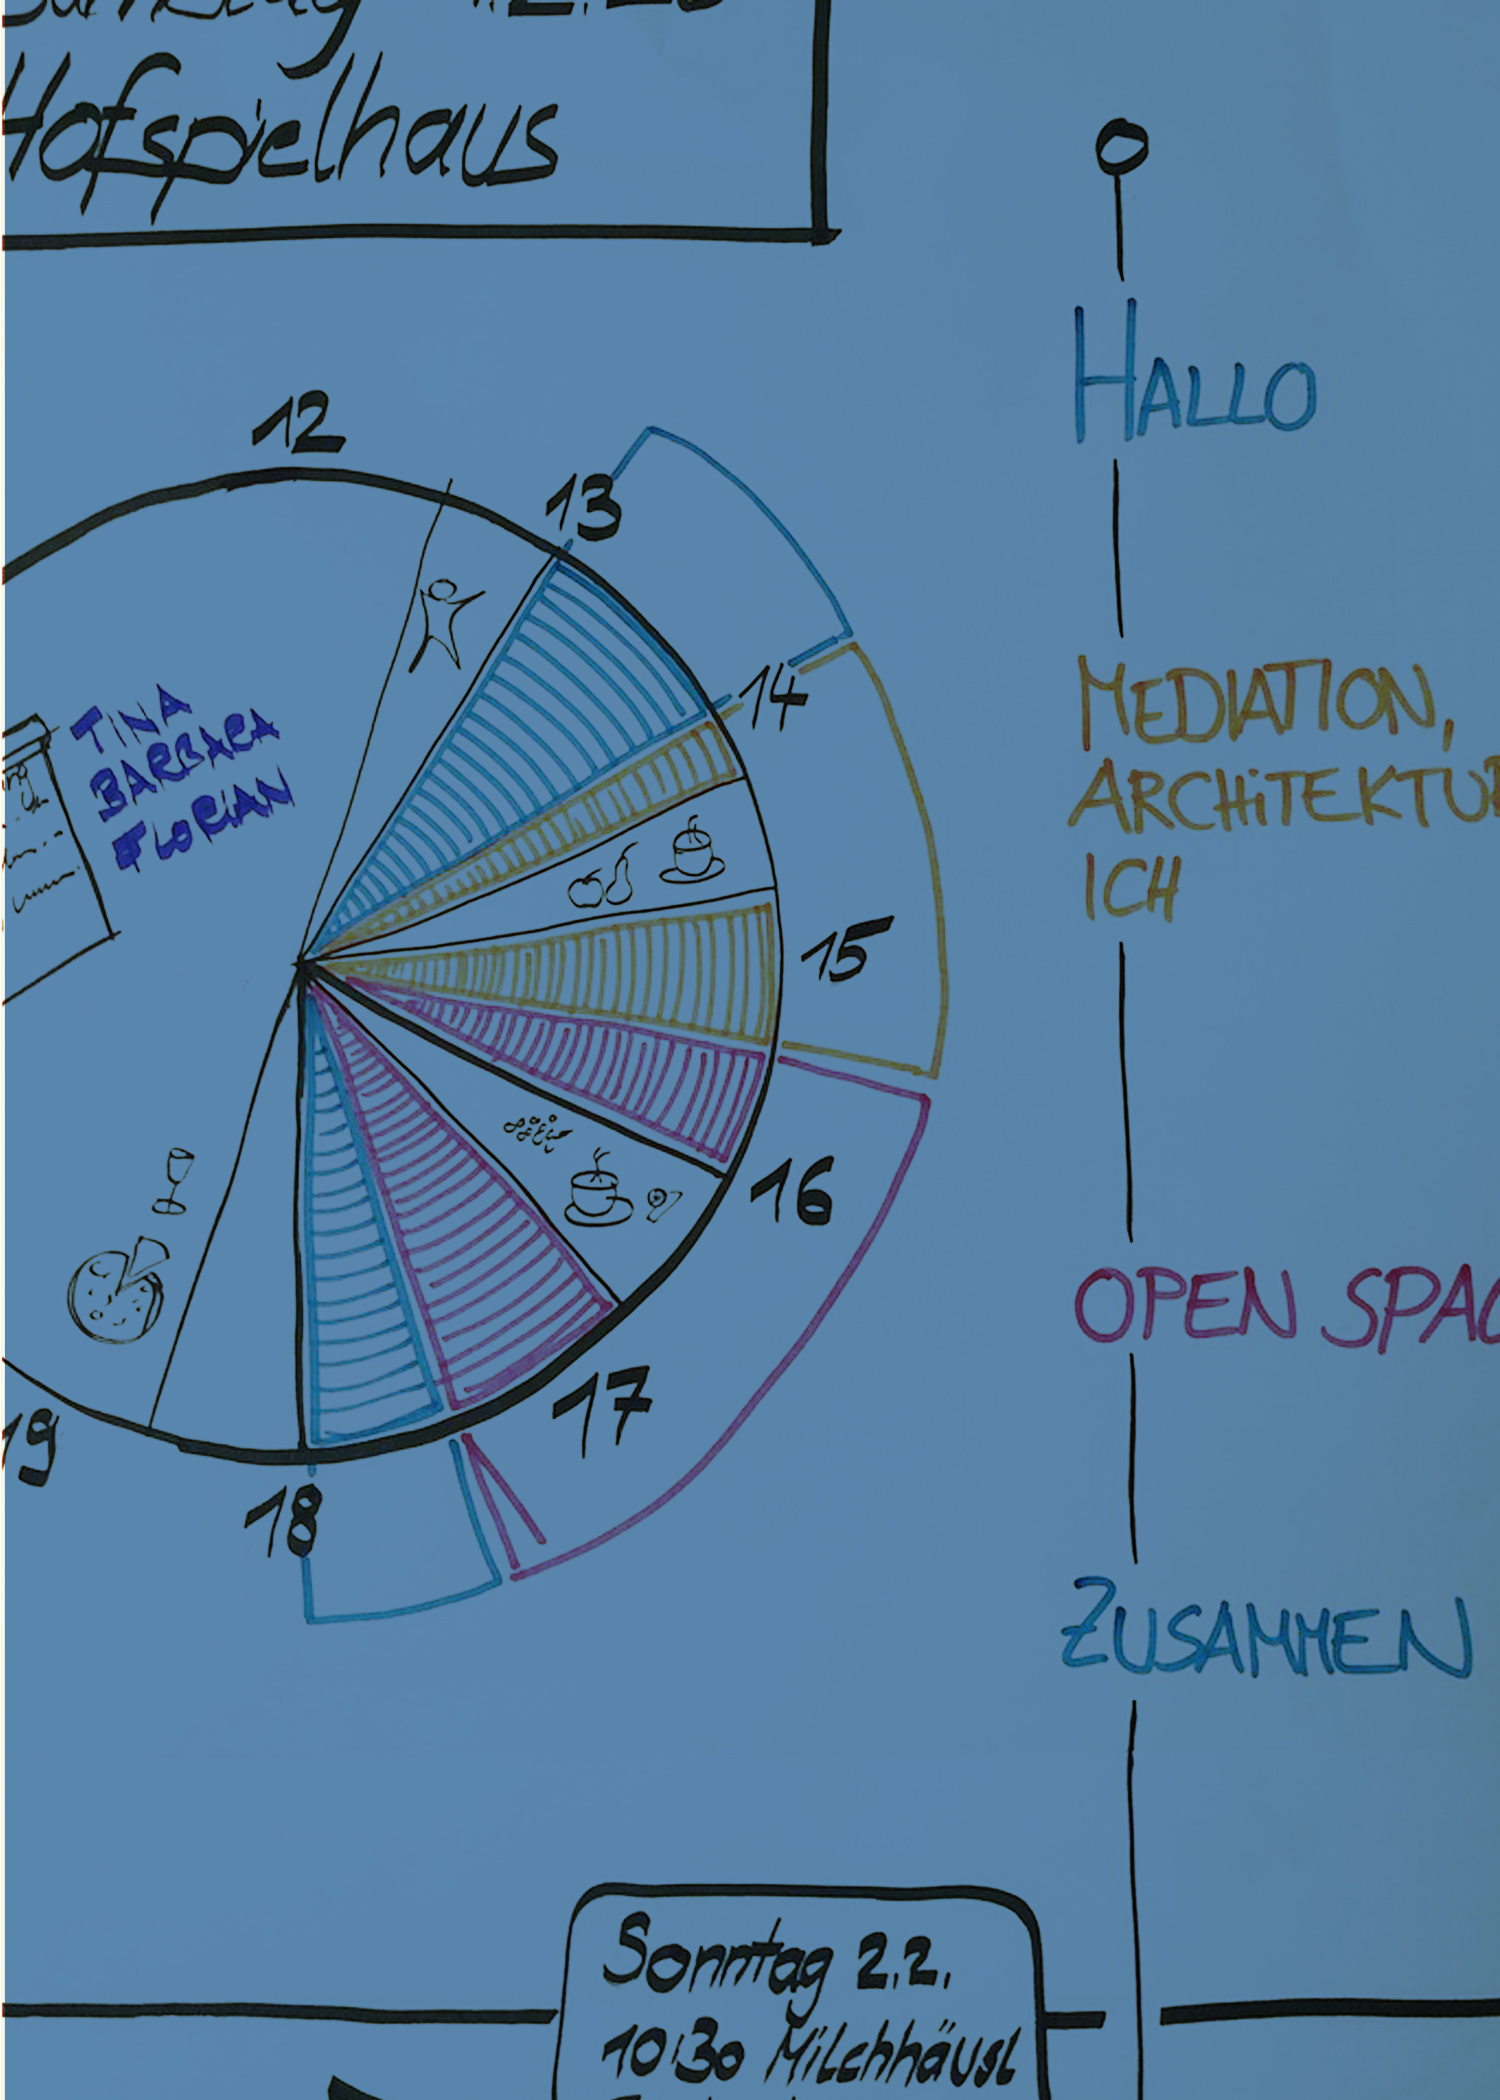 Hofspielhaus
12
13
14
15
16
17
18
19
TINA
BARBARA
FLORIAN
HALLO
MEDIATION,
ARCHITEKTUR
ICH
OPEN SPAC
ZUSAMMEN
Sonntag 2.2.
10:30 Milchhäusl